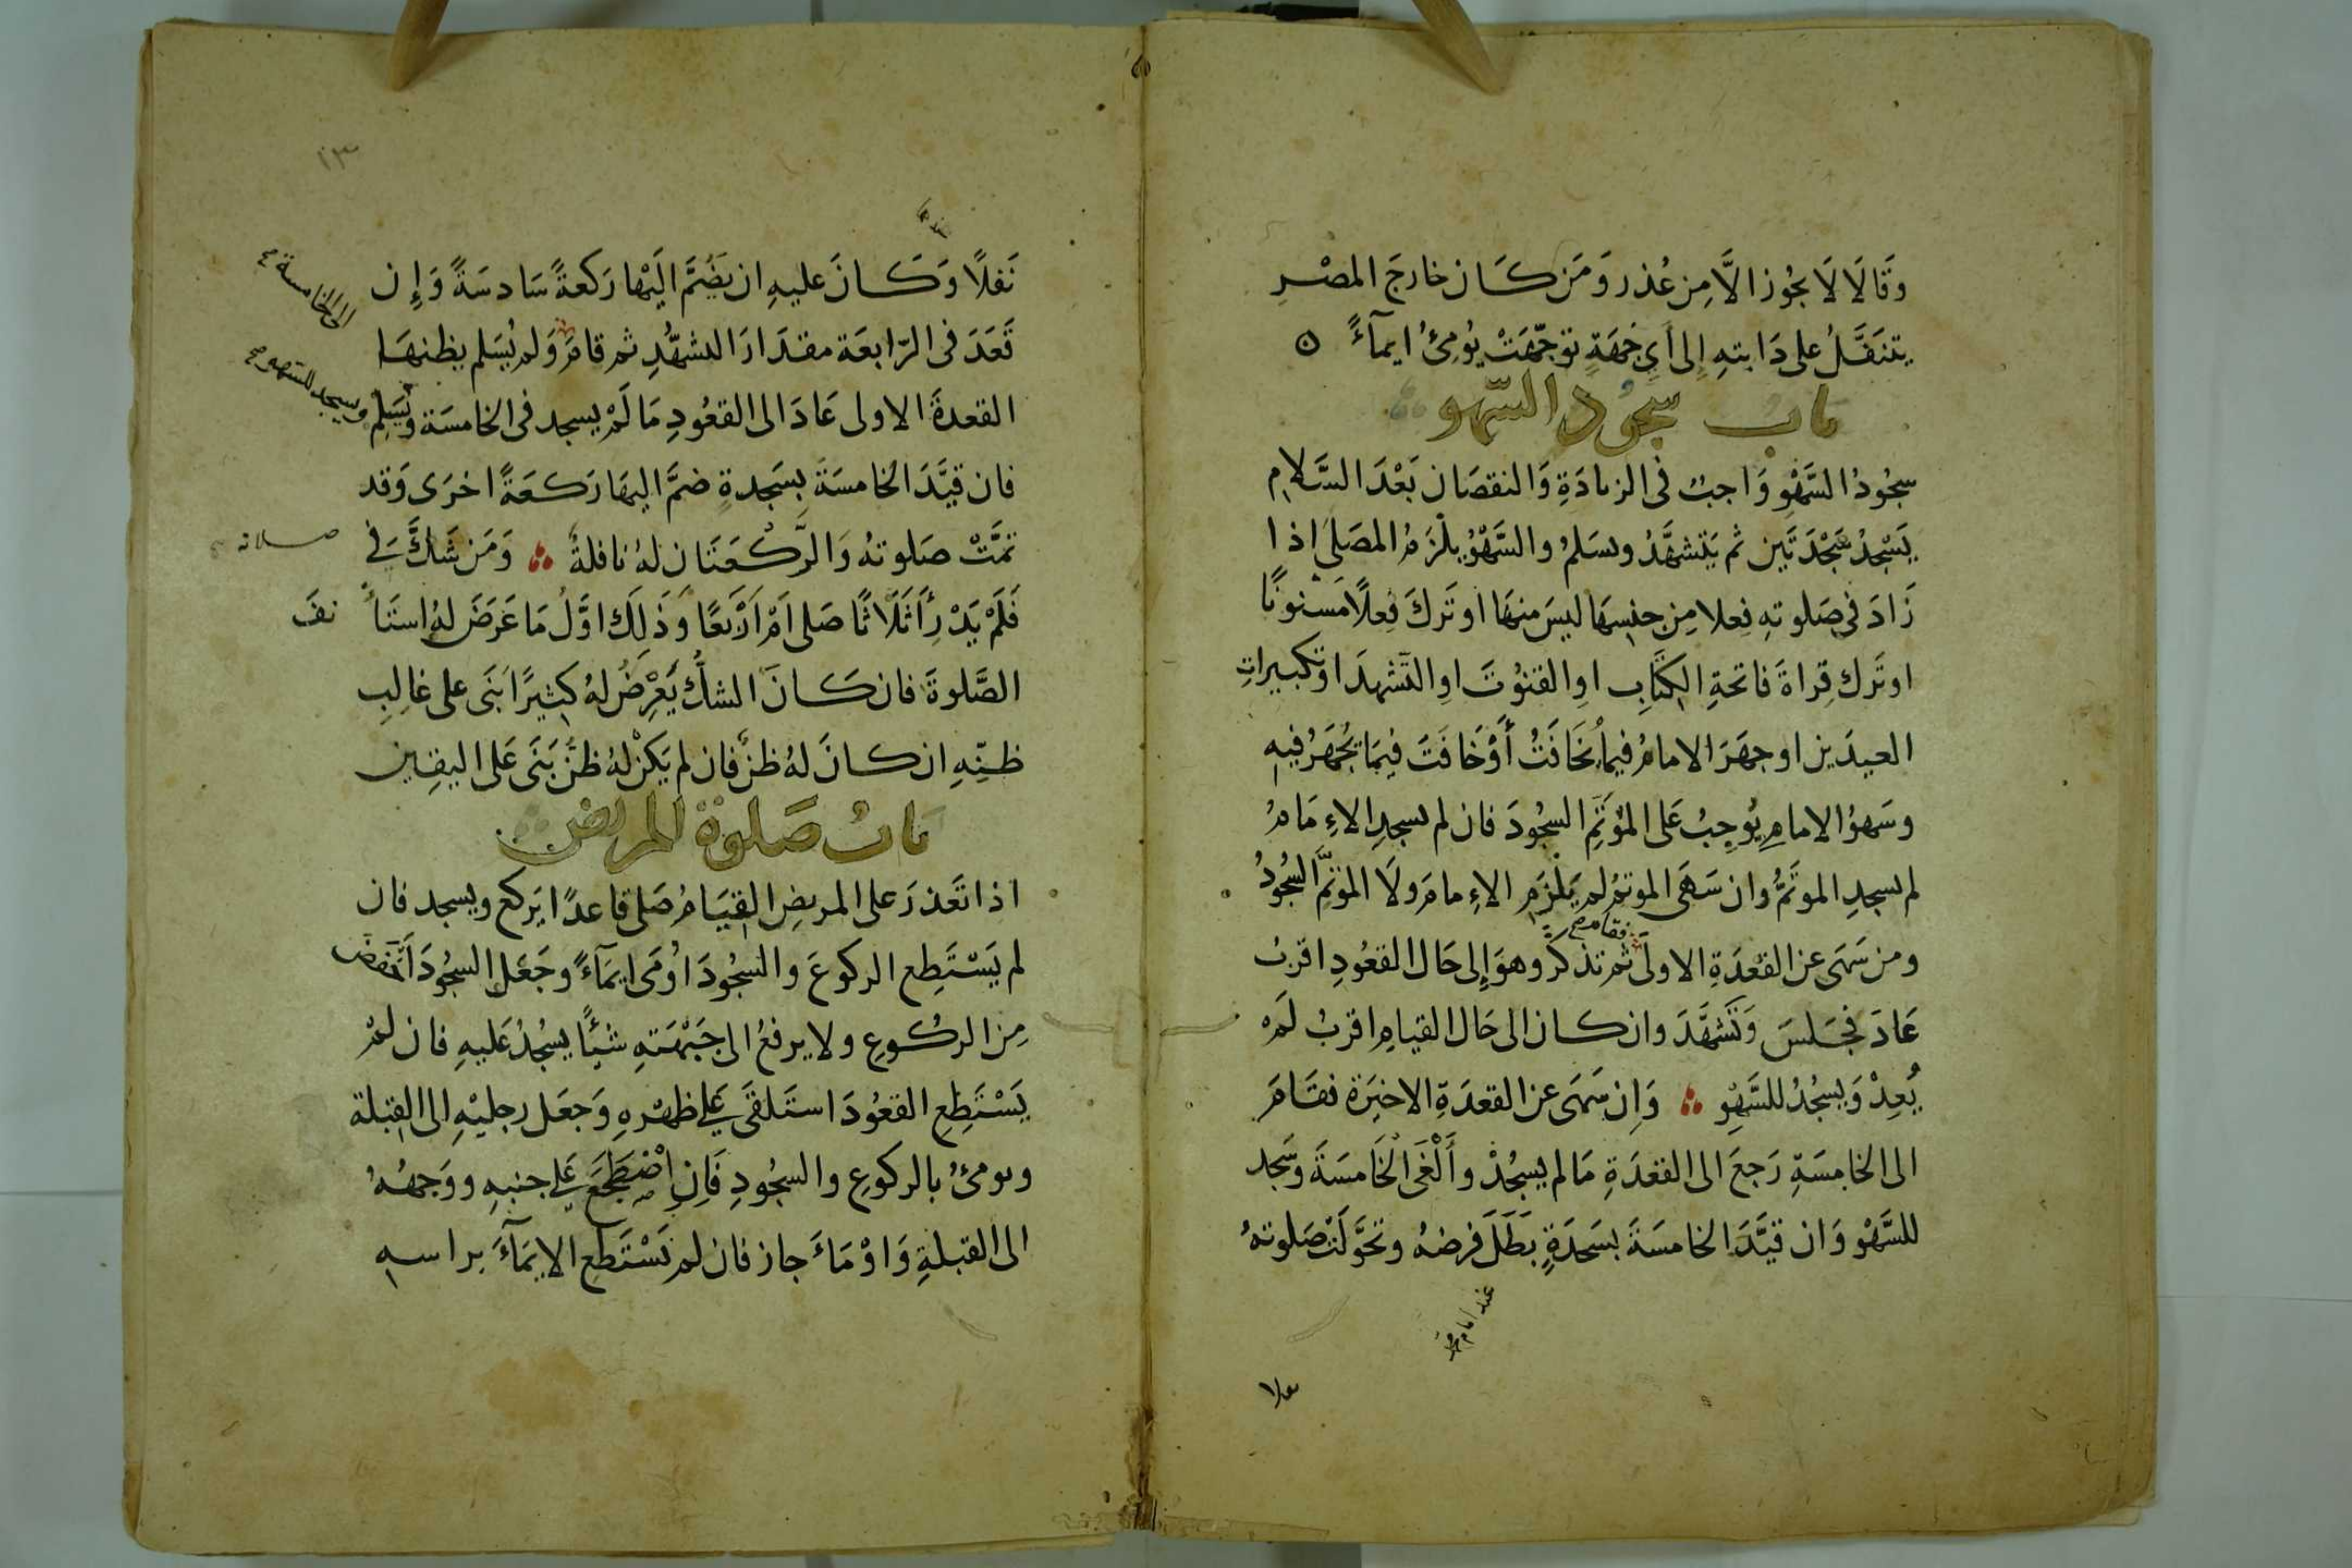 وَقَالَا لَا يجُوز الَّا مِن عُذر وَمَن كَان خارجَ المصْرِ
يتنَفَّلُ على دَابتهِ إلى أَيِ جَهَةٍ توجّهَتْ يُومِئُ ايمآءً ه
بَاب سجُود السّهو
سجُودُ السَّهْوِ وَاجبٌ فى الزيادَةِ وَالنقصَان بَعْدَ السَّلامِ
يَسْجدُ سَجْدَتَين ثم يَتشهَّدُ ويسَلمُ والسَّهْوُ يلْزَمُ المصَلى اذا
زَادَ فى صَلوتهِ فِعلا مِن جنسِهَا ليسَ منهَا او تَركَ فِعلاً مَسْنونًا
او تَرك قِراةَ فَاتحةِ الكتَابِ اوِ القنُوتَ اوِ التَشهدَ او تكبيراتِ
العيدَين او جهَرَ الامامُ فيما يُخَافَتُ أَوْ خَافَتَ فيمَا يُجْهَرُ فيهِ
وسَهوُ الامامِ يُوجِبُ عَلى المؤتَمِّ السجُودَ فان لم يسجدِ الاِمَامُ
لم يسجدِ الموتَمُّ وان سَهَى الموتمُّ لم يَلْزَمِ الاِمامَ ولَا المؤتمَّ السجُودُ
ومن سَهَى عن القعْدَةِ الاولَى ثم تذكر وهوَ إلى حَال القعُودِ اقربُ
فقام صح
عَادَ فجَلسَ وَتَشهَّدَ وان كان الى حَال القيامِ اقربُ لَمْ
يُعِدْ وَيسجُدُ للسَّهْوِ ؞ وَاِن سَهَى عن القعدَةِ الاخيَرة فقَامَ
الى الخامِسَةِ رَجعَ الى القعْدَةِ مَا لم يسجُدْ وأَلْغَى الخَامسَةَ وسَجد
للسَّهْو وَان قيَّدَ الخامسَةَ بسَجدَةٍ بَطَلَ فرضهُ وتحوَّلَتْ صَلوتهُ
عند امام محمد
نَفلاً وَكَانَ عليهِ ان يَضُمَّ الَيْها رَكعةً سَادسَةً وَإِن
الى الخامسة
قَعَدَ فى الرّابعَة مقدَارَ التشهُّدِ ثم قامَ وَلم يُسَلم يظنهَا
القعدةَ الاولى عَادَ الى القعُودِ مَا لَمْ يسجد فى الخامسَة ويُسَلِم
ويسجد للسهو صح
فان قيَّدَ الخامسَةَ بسَجدةٍ ضمَّ اليهَا رَكعَةً اخرَى وَقد
تمَّتْ صَلوتهُ وَالرَّكْعَتَان لهُ نافلةٌ ؞ وَمَن شَكَّ فى
صلاته
فَلَمْ يَدْرِ أَثَلَاثًا صَلى اَمْ اَرْبَعًا وَذَلِكَ اوَّلُ مَا عَرَضَ لهُ استَأنفَ
الصَّلوةَ فان كَانَ الشكُّ يَعْرِضُ لهُ كثيرًا بَنَى على غالِبِ
ظنِّهِ ان كانَ لهُ ظنٌّ فان لم يَكنْ لهُ ظنٌّ بَنَى عَلى اليقِين
بَابُ صَلوة المريض
اذا تَعَذرَ على المريضِ القِيَامُ صَلى قاعدًا يَركع ويسجد فان
لم يَسْتَطِع الركوعَ والسجُودَ اوْمَى ايمَآءً وجَعَل السجُودَ اَخفض
مِن الركُوعِ ولا يرفعُ الى جَبْهَتهِ شيئًا يسجُدُ عَليهِ فان لمْ
يَسْتَطِعِ القعُودَ استَلقَى عَلى ظهْرهِ وَجعَل رجليْهِ الى القِبلة
ويومئُ بالركوعِ والسجُودِ فَاِنِ اضْطَجَعَ عَلى جنبهِ ووَجههُ
الى القبلةِ وَاوْمَاءَ جاز فان لم يَسْتَطع الايمَآءَ براسهِ
١٣